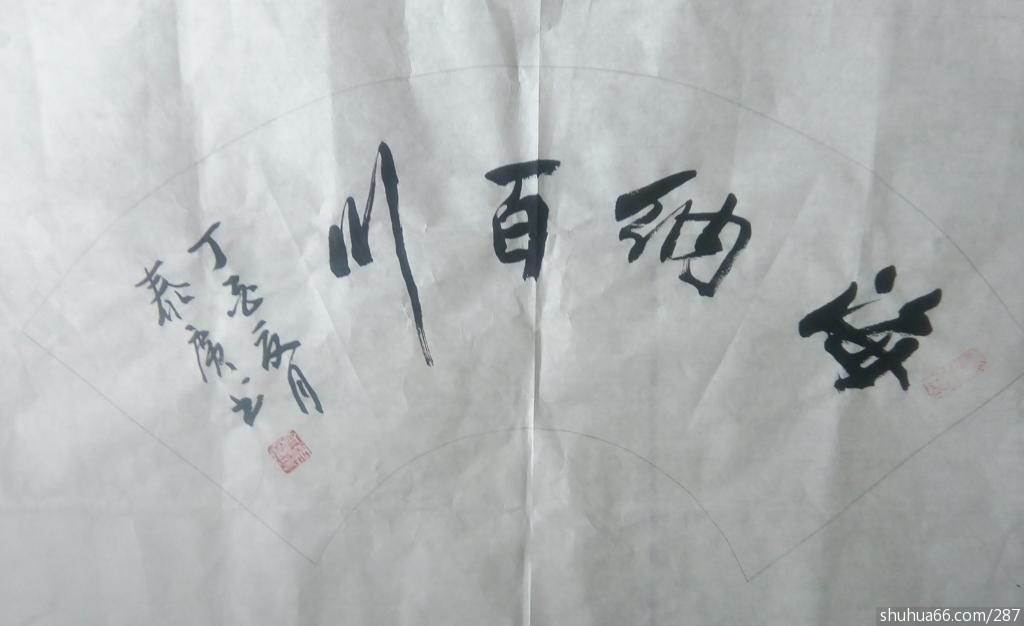 海纳百川
丁亥夏月
泰廣书
shuhua66.com/287